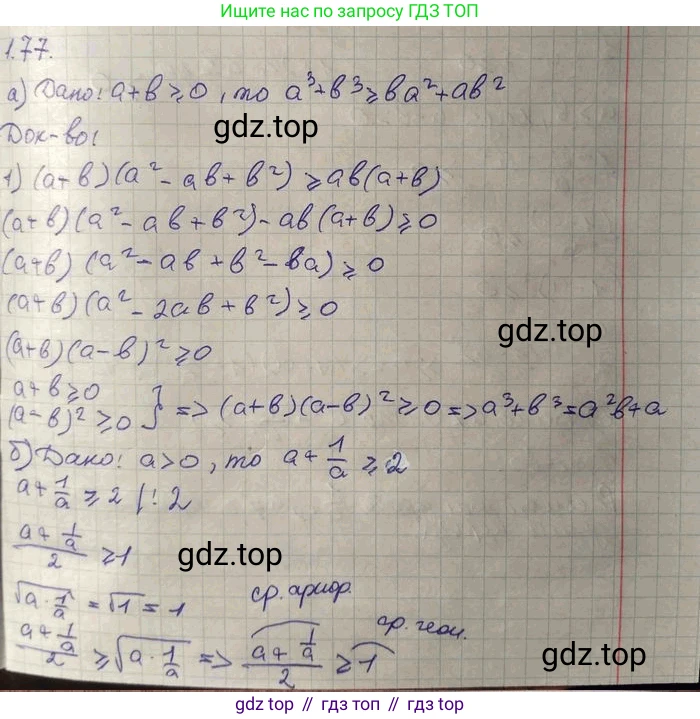 Ищите нас в поисковиках по запросу ГДЗ ТОП
1.77.
а) Дано: a+b⩾0, то a³+b³⩾ba²+ab²
Док-во:
gdz.top
1) (a+b)(a²-ab+b²)⩾ab(a+b)
(a+b)(a²-ab+b²)-ab(a+b)⩾0
(a+b)(a²-ab+b²-ba)⩾0
(a+b)(a²-2ab+b²)⩾0
gdz.top
(a+b)(a-b)²⩾0
a+b⩾0
(a-b)²⩾0 } => (a+b)(a-b)²⩾0 => a³+b³=a²b+a
б) Дано: a>0, то a+1/a⩾2
a+1/a⩾2 |:2
(a+1/a)/2⩾1
gdz.top
√(a·1/a)=√1=1
ср. ариф.
ср. геом.
(a+1/a)/2⩾√(a·1/a) => (a+1/a)/2⩾1
gdz.top
gdz.top // gdz.top // gdz.top // gdz.top